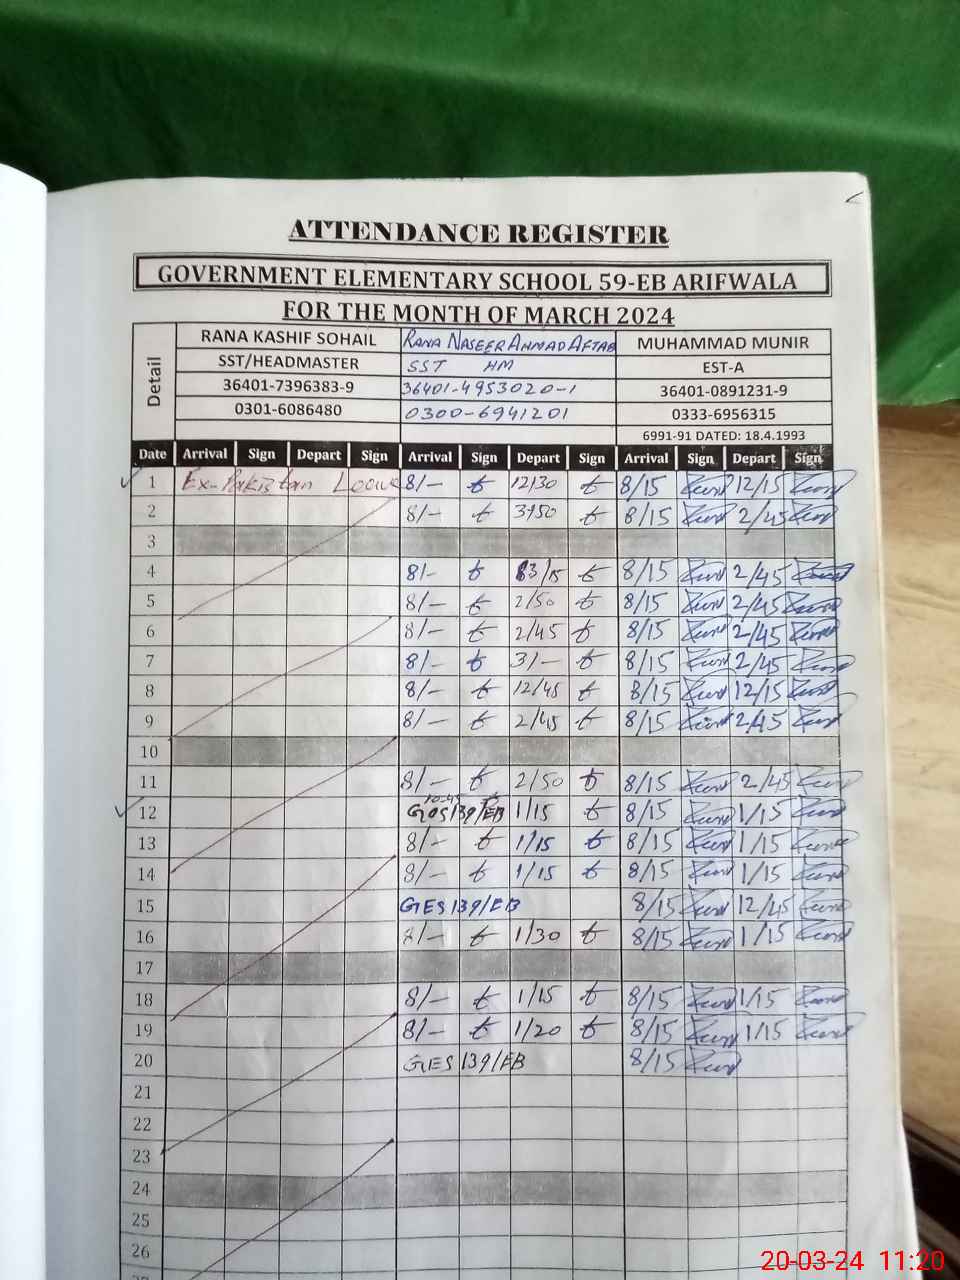 ATTENDANCE REGISTER
GOVERNMENT ELEMENTARY SCHOOL 59-EB ARIFWALA
FOR THE MONTH OF MARCH 2024
Detail
RANA KASHIF SOHAIL RANA NASEER AHMAD AFTAB MUHAMMAD MUNIR
SST/HEADMASTER SST HM EST-A
36401-7396383-9 36401-4953020-1 36401-0891231-9
0301-6086480 0300-6941201 0333-6956315
6991-91 DATED: 18.4.1993
Date Arrival Sign Depart Sign Arrival Sign Depart Sign Arrival Sign Depart Sign
1 Ex-Pakistan Leave 8/- 12/30 8/15 12/15
2 8/- 8/15 2/45
3
4 8/- 3/15 8/15 2/45
5 8/- 2/50 8/15 2/45
6 8/- 2/45 8/15 2/45
7 8/- 3/- 8/15 2/45
8 8/- 12/45 8/15 12/15
9 8/- 2/45 8/15 2/45
10
11 8/- 2/50 8/15 2/45
12 GES 139/EB 1/15 8/15 1/15
13 8/- 1/15 8/15 1/15
14 8/- 1/15 8/15 1/15
15 GES 139/EB 8/15 12/45
16 8/- 1/30 8/15 1/15
17
18 8/- 1/15 8/15 1/15
19 8/- 1/20 8/15 1/15
20 GES 139/EB 8/15
21
22
23
24
25
26
20-03-24 11:20